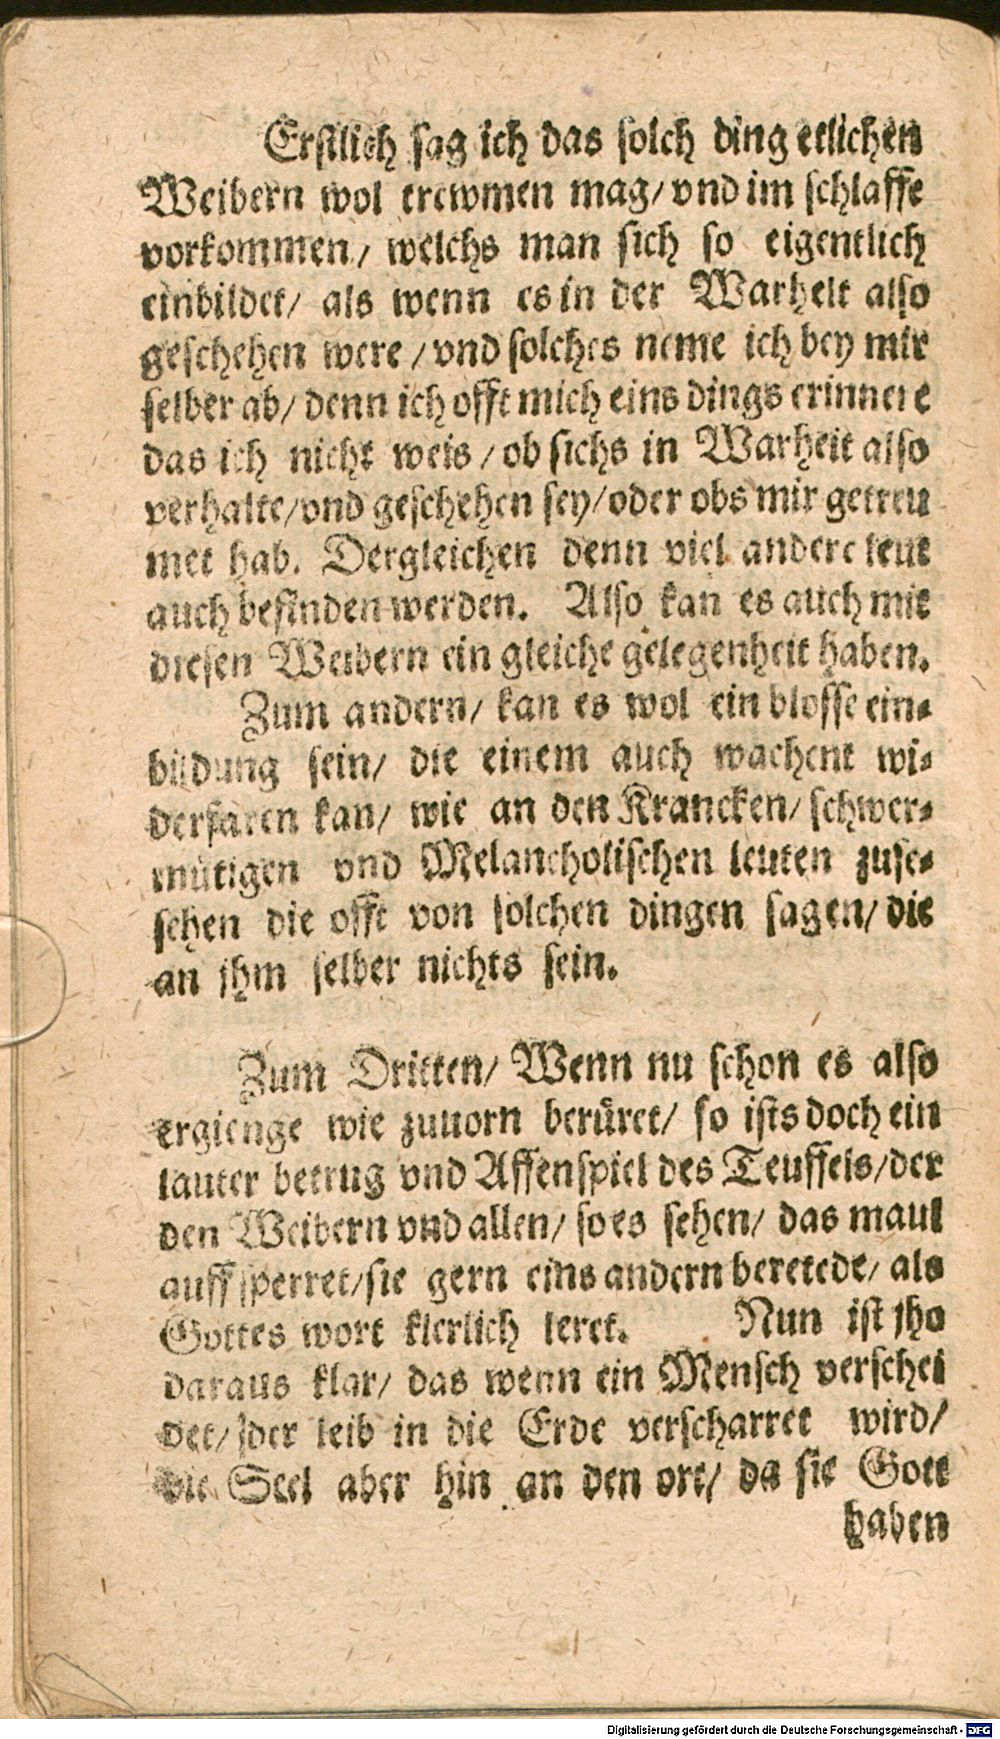 Erstlich sag ich das solch ding etlichen
Weibern wol trewmen mag/ vnd im schlaffe
vorkommen/ welchs man sich so eigentlich
einbildet/ als wenn es in der Warheit also
geschehen were/ vnd solches neme ich bey mir
selber ab/ denn ich offt mich eins dings erinnere
das ich nicht weis/ ob sichs in Warheit also
verhalte/ vnd geschehen sey/ oder obs mir getreu
met hab. Dergleichen denn viel andere leut
auch befinden werden. Also kan es auch mit
diesen Weibern ein gleiche gelegenheit haben.
Zum andern/ kan es wol ein blosse ein-
bildung sein/ die einem auch wachent wi-
derfaren kan/ wie an den Krancken/ schwer-
mütigen vnd Melancholischen leuten zuse-
sehen die offt von solchen dingen sagen/ die
an jhm selber nichts sein.
Zum Dritten/ Wenn nu schon es also
ergienge wie zuuorn berüret/ so ists doch ein
lauter betrug vnd Affenspiel des Teuffels/ der
den Weibern vnd allen/ so es sehen/ das maul
auff sperret/ sie gern eins andern beretede/ als
Gottes wort klerlich leret. Nun ist jho
daraus klar/ das wenn ein Mensch verschei
det/ der leib in die Erde verscharret wird/
die Seel aber hin an den ort/ da sie Gott
haben
Digitalisierung gefördert durch die Deutsche Forschungsgemeinschaft - DFG